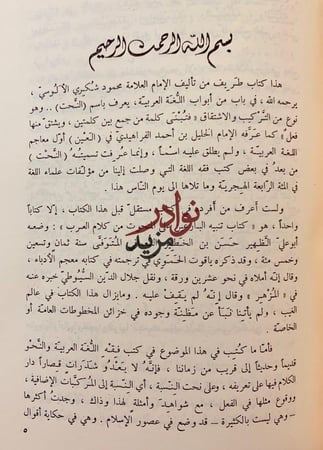 بسم الله الرحمن الرحيم
هذا كتاب طريف من تأليف الإمام العلامة محمود شكري الآلوسي ،
يرحمه الله ، في باب من أبواب اللغة العربية، يعرف باسم (النحت) .. وهو
نوع من التركيب والاشتقاق ؛ فتبنى كلمة من جمع بين كلمتين ، ويشتق منها
فعل؛ كما عرفه الإمام الخليل بن أحمد الفراهيدي في (العين) أول معاجم
اللغة العربية ، ولم يطلق عليه اسماً ، وإنما عرفت تسميته (النحت)
من بعد في بعض كتب فقه اللغة التي وصلت إلينا من مؤلفات علماء اللغة
في المئة الرابعة الهجرية وما تلاها إلى يوم الناس هذا .
ولست أعرف من أفرد مستقل قبل هذا الكتاب ، إلا كتاباً
واحداً ، هو « كتاب تنبيه من كلام العرب » : وضعه
أبو علي الظهير حسن بن المتوفى سنة ثمان وتسعين
وخمس مئة ، وقد ذكره ياقوت الحموي في ترجمته في كتابه معجم الأدباء ،
وقال إنه أملاه في نحو عشرين ورقة ، ونقل جلال الدين السيوطي خبره عنه
في « المزهر » وقال إنه لم يقف عليه . ومايزال هذا الكتاب في عالم
الغيب ، ولم يأتنا نبأ عن مظنة وجوده في خزائن المخطوطات العامة أو
الخاصة .
فأما ما كتب في هذا الموضوع في كتب فقه اللغة العربية والنحو
قديماً وحديثاً إلى قريب من زماننا ، فإنه لا يعدو شذرات قصاراً دار
الكلام فيها على تعريفه ، وعلى نحت النسبة ، أي النسبة إلى المركبات الإضافية ،
ووقوع مثلها في الفعل ، مع شواهد وأمثلة لهذا وذاك ، وجدت أكثرها
– وهي ليست بالكثيرة – قد وضع في عصور الإسلام . وهي في حكاية أقوال
٥
نوادر
مزيد